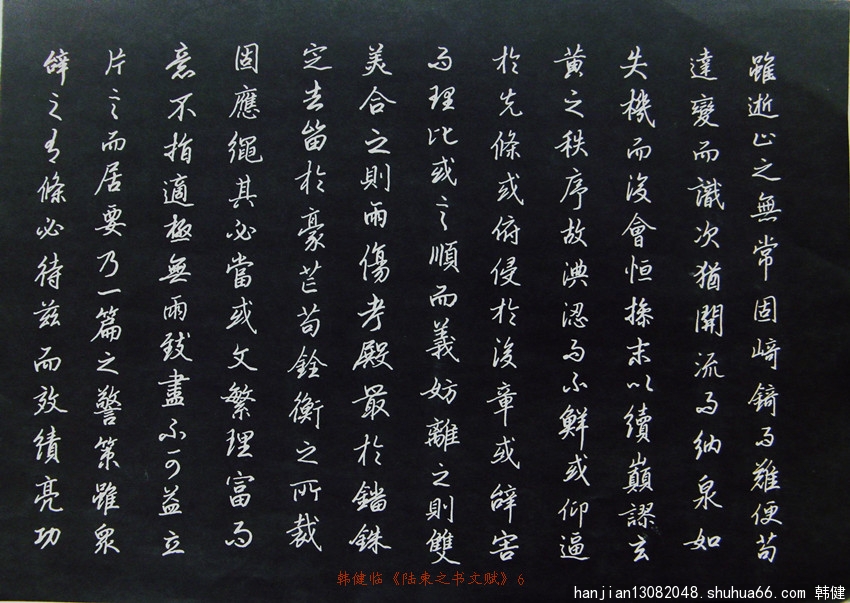 雖逝止之無常固崎錡而難便苟
達變而識次猶開流而納泉如
失機而後會恒操末以續巔謬玄
黃之秩序故淟涊而不鮮或仰逼
於先條或俯侵於後章或辭害
而理比或言順而義妨離之則雙
美合之則兩傷考殿最於錙銖
定去留於豪芒苟銓衡之所裁
固應繩其必當或文繁理富而
意不指適極無兩致盡不可益立
片言而居要乃一篇之警策雖衆
辭之有條必待兹而效績亮功
韩健临《陆柬之书文赋》6
hanjian13082048.shuhua66.com 韩健